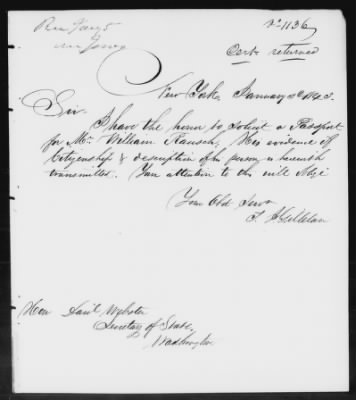 No 1136
Certe returned
New York, January
Sir
I have the honor to solicit a Passport
for Mr. William Rausch, His evidence of
Citizenship & description of his person is herewith
transmitted. Your attention to this will Oblige
Your Obd Servt
Hon Danl Webster
Secretary of State,
Washington